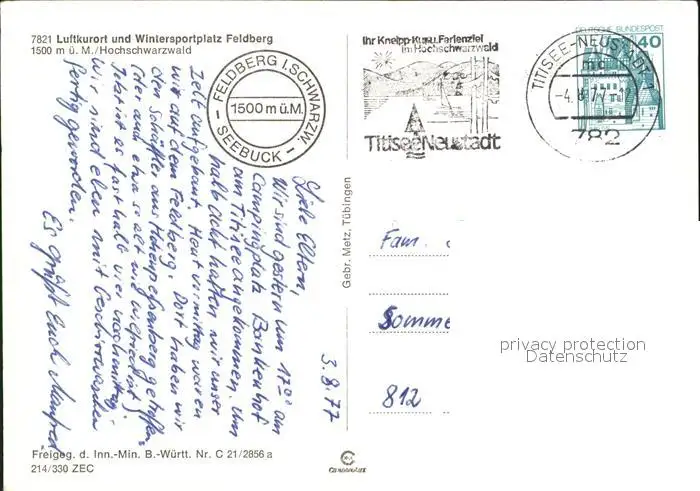 7821 Luftkurort und Wintersportplatz Feldberg
1500 m ü. M./Hochschwarzwald
FELDBERG I. SCHWARZW.
1500 m ü.M.
- SEEBUCK -
Ihr Kneipp-Kur u. Ferienziel
im Hochschwarzwald
Titisee Neustadt
TITISEE-NEUSTADT 1
mc
-4.8.77-12
782
DEUTSCHE BUNDESPOST
40
3.8.77
Liebe Eltern,
Wir sind gestern um 17⁰⁰ am
Campingplatz Bankenhof
am Titisee angekommen. Um
halb acht hatten wir unser
Zelt aufgebaut. Heut vormittag waren
wir auf dem Feldberg. Dort haben wir
den Schäffler aus Hohenpeißenberg getroffen
(der auch etwa so alt wie wir
Jetzt ist es fast halb vier nachmittag,
Wir sind eben mit Geschirrwaschen
fertig geworden.
Es grüßt Euch Manfred
Gebr. Metz, Tübingen
Fam.
Somme
812
privacy protection
Datenschutz
Freigeg. d. Inn.-Min. B.-Württ. Nr. C 21/2856 a
214/330 ZEC